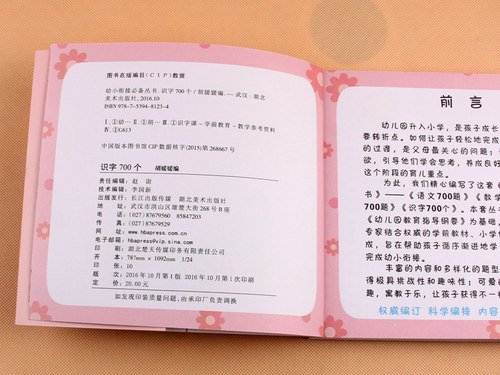 图书在版编目(CIP)数据
幼小衔接必备丛书.识字700个/胡媛媛编.—武汉:湖北
美术出版社,2016.10
ISBN 978-7-5394-8123-4
Ⅰ.①幼… Ⅱ.①胡… Ⅲ.①识字课-学前教育-教学参考资料
Ⅳ.①G613
中国版本图书馆CIP数据核字(2015)第268667号
识字700个 胡媛媛编
责任编辑: 赵
技术编辑: 李国新
出版发行: 长江出版传媒 湖北美术出版社
地 址: 武汉市洪山区雄楚大街268号B座
电 话: (027)87679560 85847203
传 真: (027)87679529
网 址: www.hbapress.com.cn
电子邮箱: hbapress@vip.sina.com
印 刷: 湖北楚天传媒印务有限责任公司
开 本: 787mm×1092mm 1/24
印 张: 10
版 次: 2016年10月第1版 2016年10月第1次印刷
定 价: 20.00元
如发现印装质量问题,由承印厂负责调换
前 言
幼儿园升入小学,是孩子成长
要转折点。如何让孩子轻松地完成
的过渡,是父母最关心的问题;
欲,引导他们学会思考,养成良好
这个阶段的育儿重点。
为此,我们精心编写了这套《
书》——《语文700题》《数学
700题》《识字700个》。本套丛
《幼儿园教育指导纲要》为基础,
专家结合权威的学前教材、小学
成,旨在帮助孩子循序渐进地学
完成幼小衔接。
丰富的内容和多样化的题型
得极具挑战性和趣味性;可爱
趣,寓教于乐,让孩子获得不一
权威编订 科学编排 内容